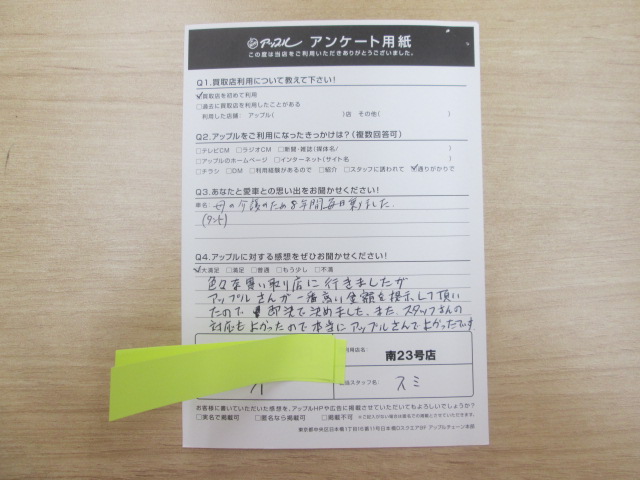 アップル アンケート用紙
この度は当店をご利用いただきありがとうございました。
Q1.買取店利用について教えて下さい!
☑買取店を初めて利用
□過去に買取店を利用したことがある
利用した店舗: アップル( )店 その他( )
Q2.アップルをご利用になったきっかけは?(複数回答可)
□テレビCM □ラジオCM □新聞・雑誌(媒体名/ )
□アップルのホームページ □インターネット(サイト名 )
□チラシ □DM □利用経験があるので □紹介 □スタッフに誘われて ☑通りがかりで
Q3.あなたと愛車との思い出をお聞かせください!
車名 母の介護のため 年間毎日乗りました。
(タント)
Q4.アップルに対する感想をぜひお聞かせください!
☑大満足 □満足 □普通 □もう少し □不満
色々な買い取り店に行きましたが
アップルさんが一番高い金額を提示して頂い
たので 即決で決めました。また スタッフさんの
対応も よかったので 本当に アップルさんで よかったです
利用店名: 南23号店
担当スタッフ名: スミ
お客様に書いていただいた感想を、アップルHPや広告に掲載させていただいてもよろしいでしょうか?
□実名で掲載可 □匿名なら掲載可 □掲載不可 ※ご記入がない場合は匿名での掲載とさせていただきます。
東京都中央区日本橋1丁目16番11号日本橋Dスクエア8F アップルチェーン本部